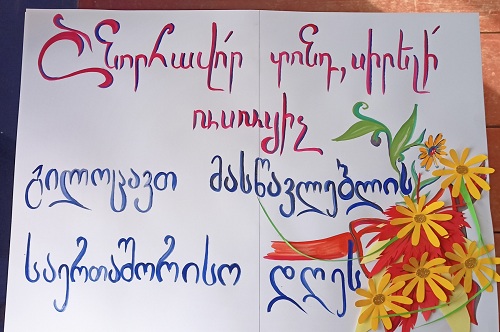 Շնորհավոր տոնդ, սիրելի
ուսուցիչ
გილოცავთ მასწავლებლის
საერთაშორისო დღეს